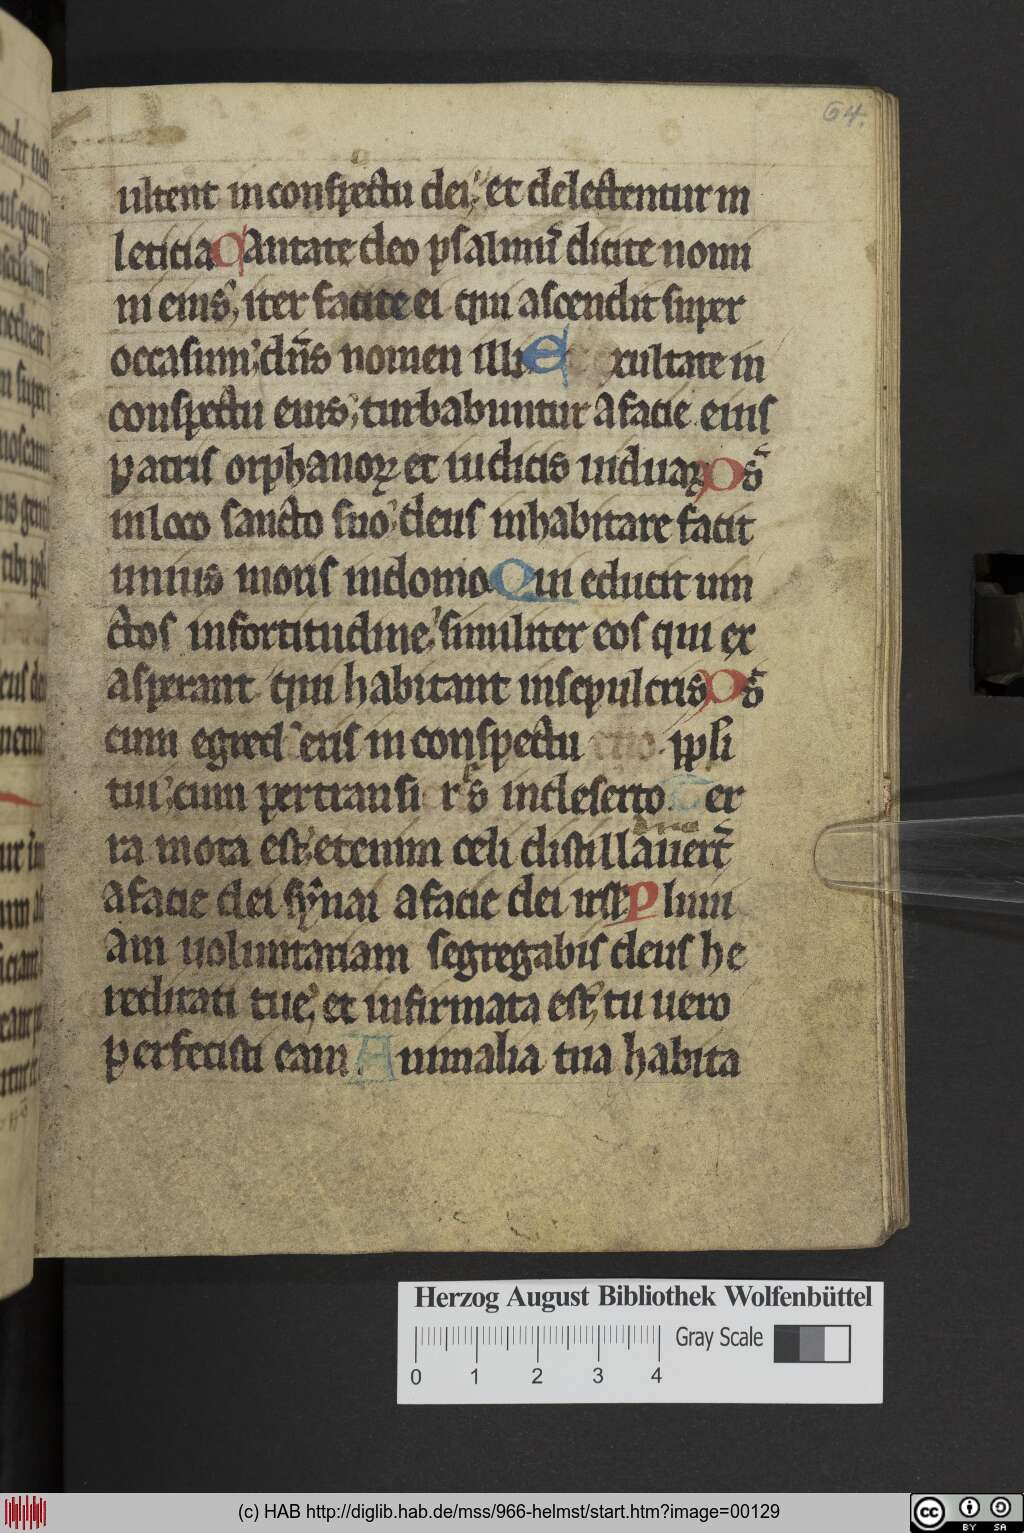 64.
ultent in conspectu dei; et delectentur in
leticia Cantate deo psalmū dicite nomi
ni eius; iter facite ei qui ascendit super
occasum; dn̄s nomen illi Exultate in
conspectu eius; turbabuntur a facie eius
patris orphanoꝝ et iudicis uiduaꝝ Ds̄
in loco sancto suo; deus inhabitare facit
unius moris in domo Qui educit uin
ctos in fortitudine; similiter eos qui ex
asperant qui habitant in sepulcris Ds̄
cum egred eris in conspectu ppl̄i
tui; cum pertransi r s in deserto. Ter
ra mota est; etenim celi distillauert̄
a facie dei sẏnai a facie dei isrl̄ Pluui
am uoluntariam segregabis deus he
reditati tue; et infirmata est; tu uero
perfecisti eam. Animalia tua habita
Herzog August Bibliothek Wolfenbüttel
Gray Scale
0 1 2 3 4
(c) HAB http://diglib.hab.de/mss/966-helmst/start.htm?image=00129
cc BY SA